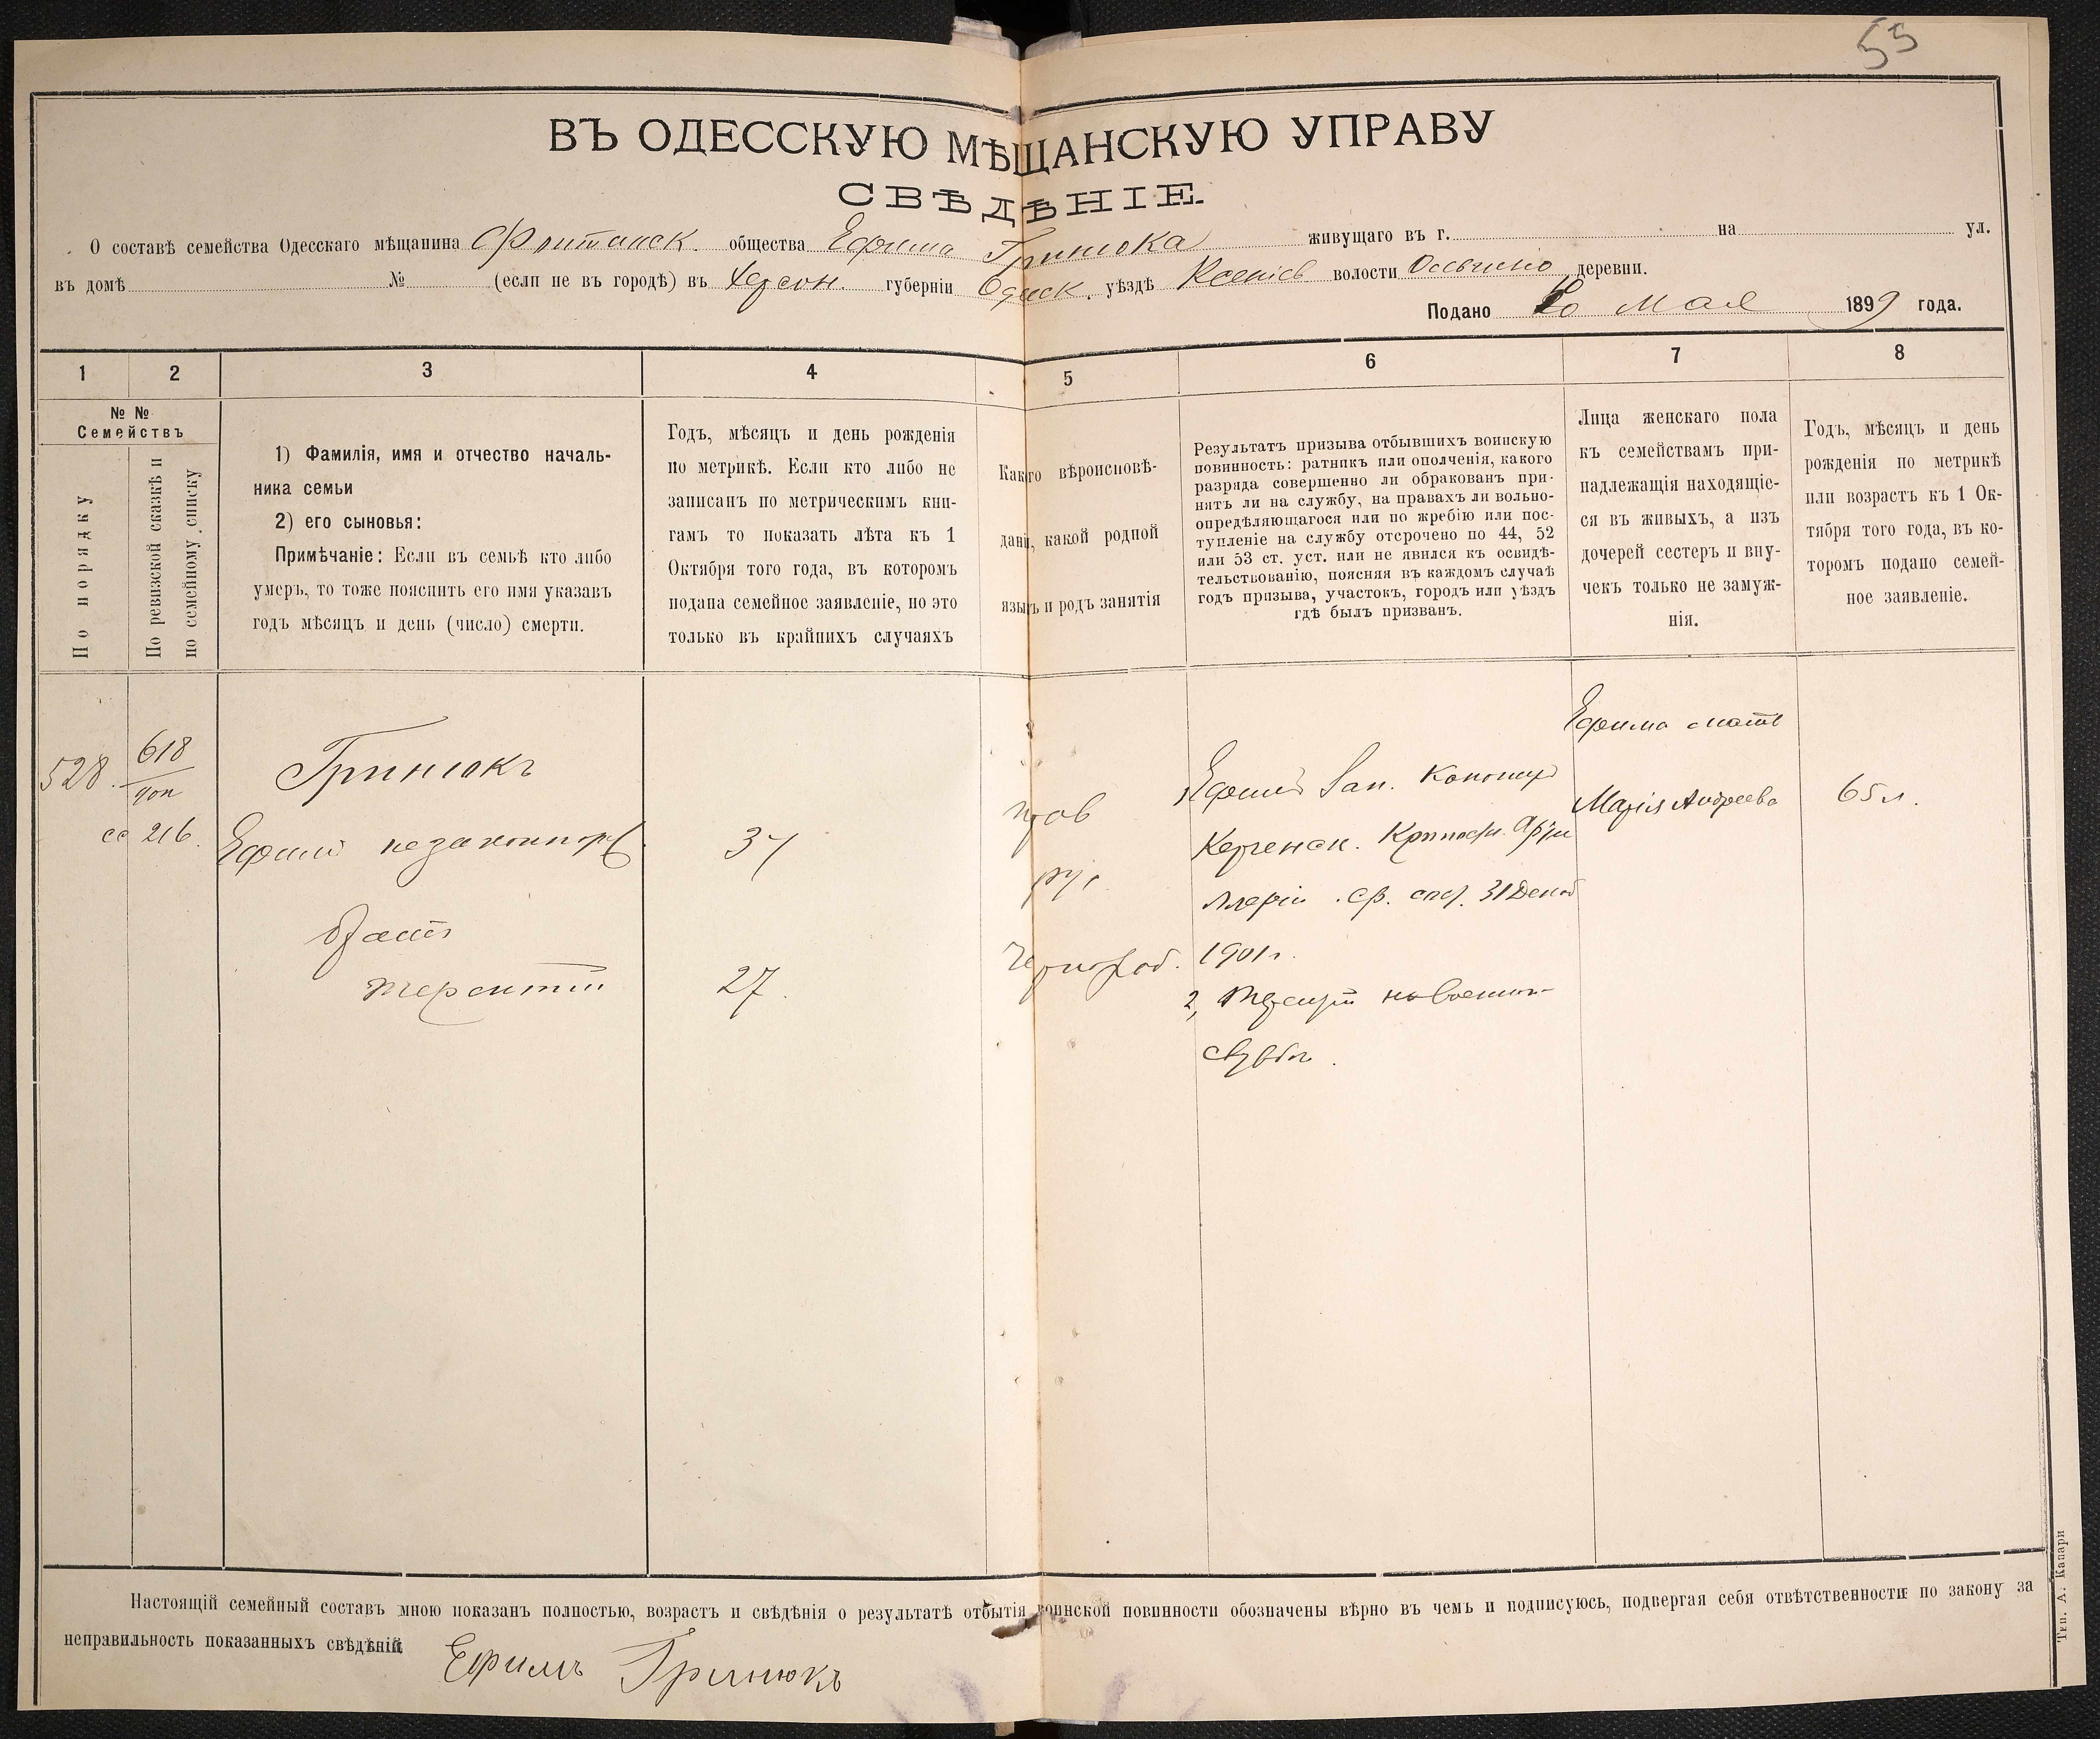 55
ВЪ ОДЕССКУЮ МѢЩАНСКУЮ УПРАВУ
СВѢДѢНІЕ.
О составѣ семейства Одесскаго мѣщанина Фонтанск. общества Ефима Гринюка живущаго въ г. на ул.
въ домѣ № (если не въ городѣ) въ Херсон. губерніи Одеск. уѣздѣ волости деревни.
Подано Мая 1899 года.
1 2 3 4 5 6 7 8
№ №
Семействъ
По порядку
По ревизской сказкѣ и
по семейному списку
1) Фамилія, имя и отчество началь-
ника семьи
2) его сыновья:
Примѣчаніе: Если въ семьѣ кто либо
умеръ, то тоже пояснить его имя указавъ
годъ мѣсяцъ и день (число) смерти.
Годъ, мѣсяцъ и день рожденія
по метрикѣ. Если кто либо не
записанъ по метрическимъ кни-
гамъ то показать лѣта къ 1
Октября того года, въ которомъ
подана семейное заявленіе, но это
только въ крайнихъ случаяхъ
Какого вѣроисповѣ-
данія, какой родной
языкъ и родъ занятія
Результатъ призыва отбывшихъ воинскую
повинность: ратникъ или ополченія, какого
разряда совершенно ли обракованъ при-
нятъ ли на службу, на правахъ ли вольно-
опредѣляющагося или по жребію или пос-
тупленіе на службу отсрочено по 44, 52
или 53 ст. уст. или не явился къ освидѣ-
тельствованію, поясняя въ каждомъ случаѣ
годъ призыва, участокъ, городъ или уѣздъ
гдѣ былъ призванъ.
Лица женскаго пола
къ семействамъ при-
надлежащія находящіе-
ся въ живыхъ, а изъ
дочерей сестеръ и вну-
чекъ только не замуж-
нія.
Годъ, мѣсяцъ и день
рожденія по метрикѣ
или возрастъ къ 1 Ок-
тября того года, въ ко-
торомъ подано семей-
ное заявленіе.
528.
618
доп
сс 216.
Гринюкъ
Ефимъ незаконнор.
братъ
Терентій
34
27.
прав
рус
чернораб.
Ефимъ Зап. Канонир
Керченск. Крѣпосн. Арти
ллеріи. ср. 31 Декаб
1901 г.
2, Терентій на военной
службѣ.
Ефима мать
Марія Андреева
65 л.
Настоящій семейный составъ мною показанъ полностью, возрастъ и свѣдѣнія о результатѣ отбытія воинской повинности обозначены вѣрно въ чемъ и подписуюсь, подвергая себя отвѣтственности по закону за
неправильность показанныхъ свѣдѣній
Ефимъ Гринюкъ
Тип. А. Капари